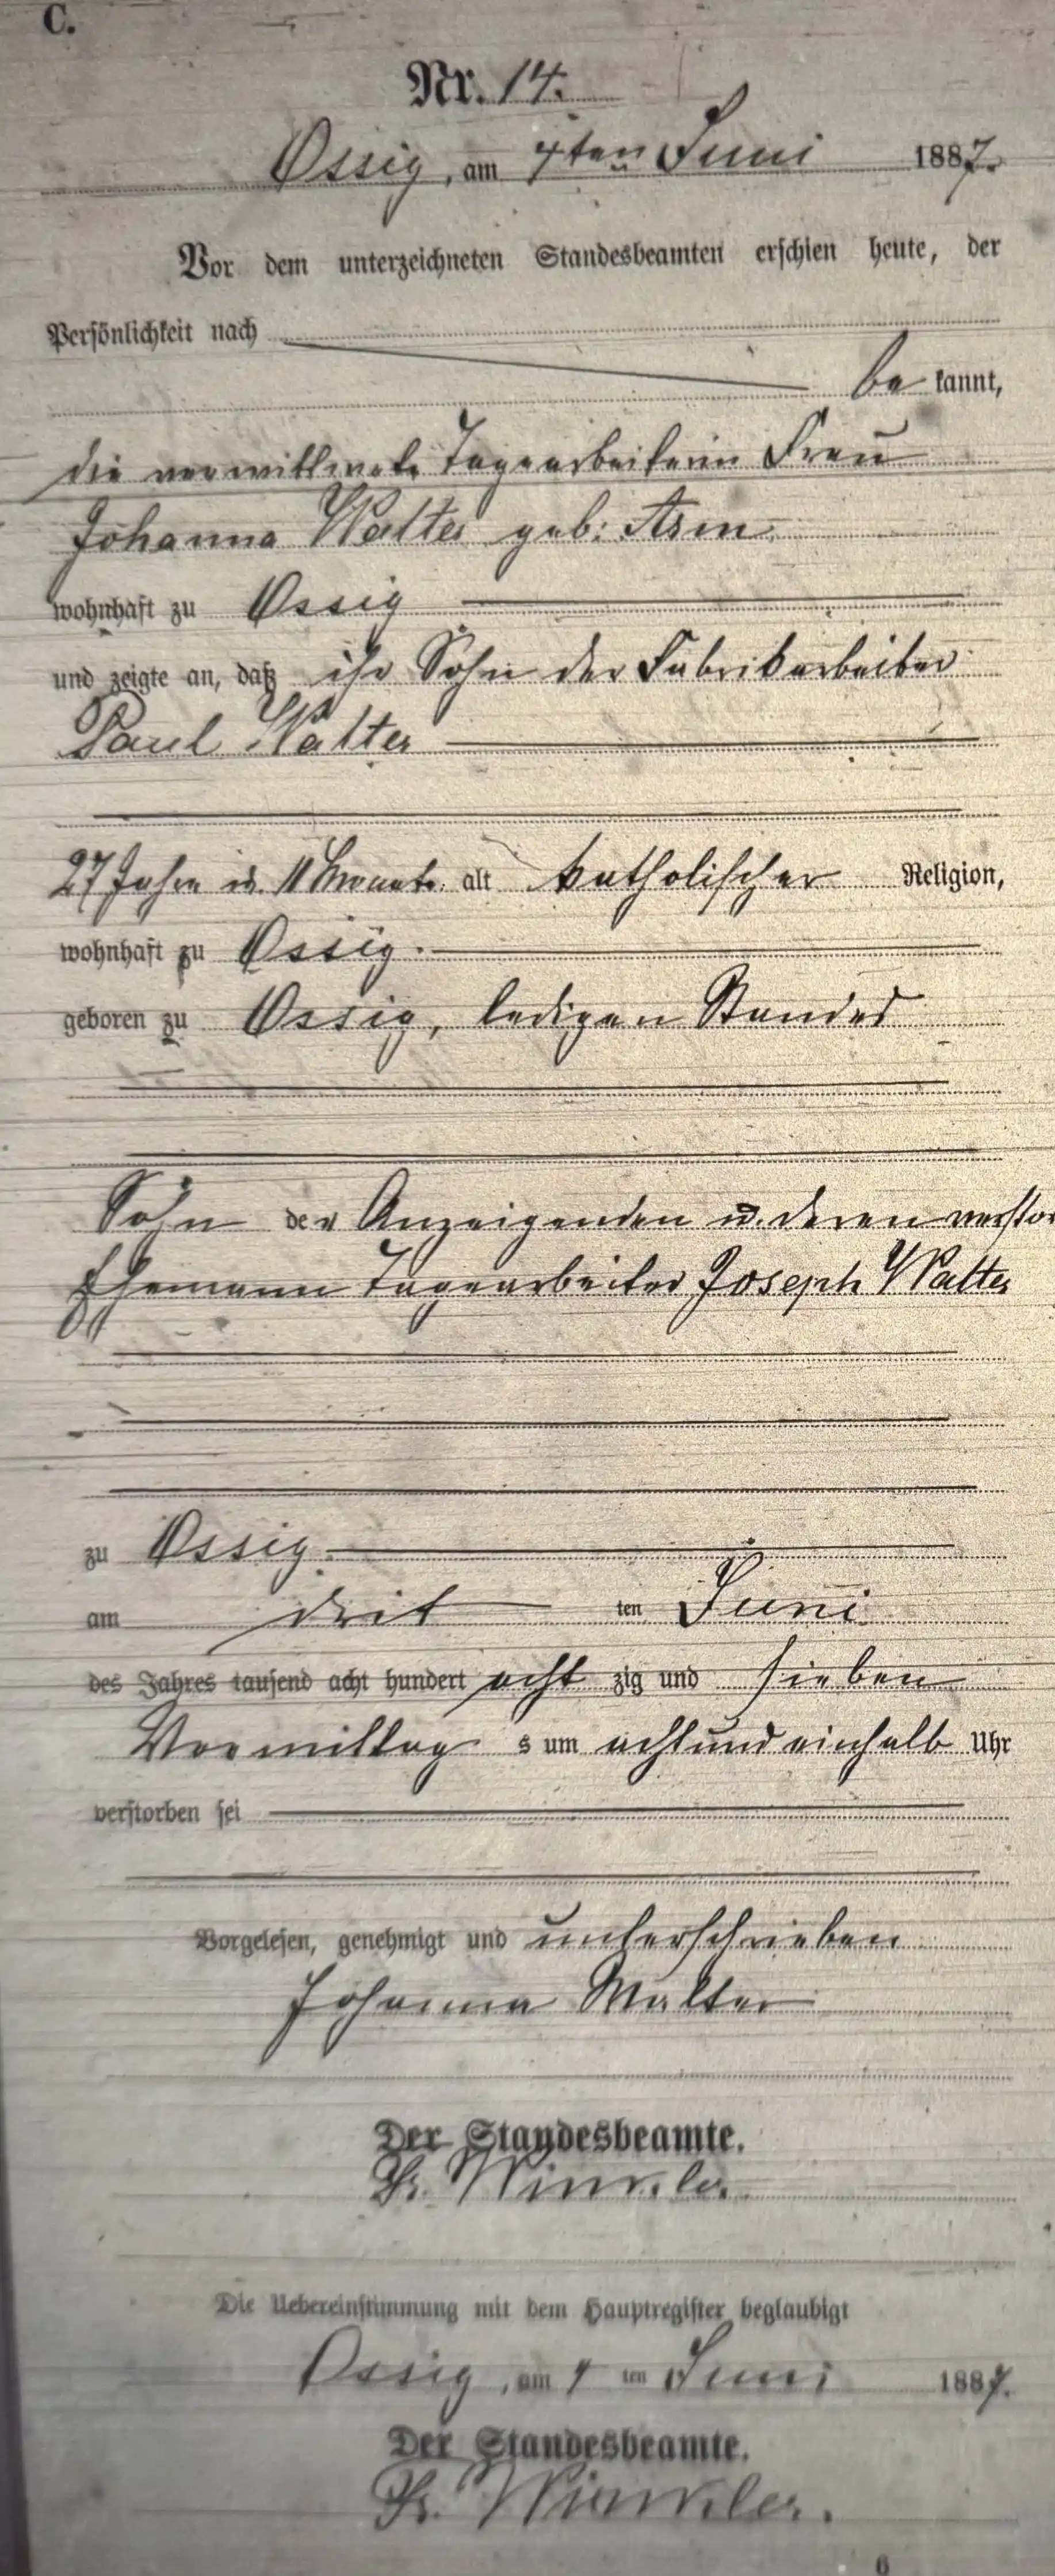 C.
Nr. 14.
Ossig, am 4ten Juni 1887.
Vor dem unterzeichneten Standesbeamten erschien heute, der
Persönlichkeit nach
be kannt,
die verwittwete Tagearbeiterin Frau
Johanna Walter geb:
wohnhaft zu Ossig
und zeigte an, daß ihr Sohn der Fabrikarbeiter
Paul Walter
27 Jahre u. 11 Monate alt katholischer Religion,
wohnhaft zu Ossig.
geboren zu Ossig, ledigen Standes
Sohn der Anzeigenden u. deren verstor
Ehemann Tagearbeiter Joseph Walter
zu Ossig.
am drit ten Juni
des Jahres tausend acht hundert acht zig und sieben
Vormittag s um achtundeinhalb Uhr
verstorben sei
Vorgelesen, genehmigt und unterschrieben
Johanna Walter
Der Standesbeamte.
Winkler.
Die Uebereinstimmung mit dem Hauptregister beglaubigt
Ossig, am 4 ten Juni 1887.
Der Standesbeamte.
Winkler.
6